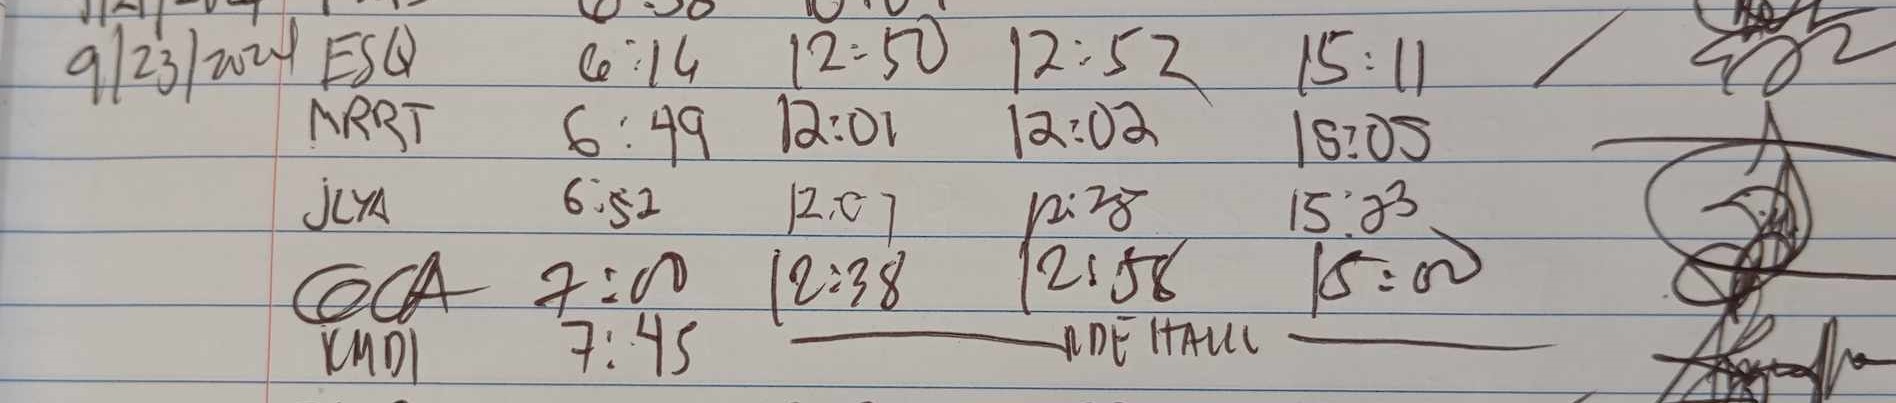 9/23/2024 ESQ 6:14 12:50 12:52 15:11
MRRT 6:49 12:01 12:02 15:05
JLYA 6:52 12:07 12:28 15:23
GCA 7:00 12:38 12:58 15:00
KMDI 7:45